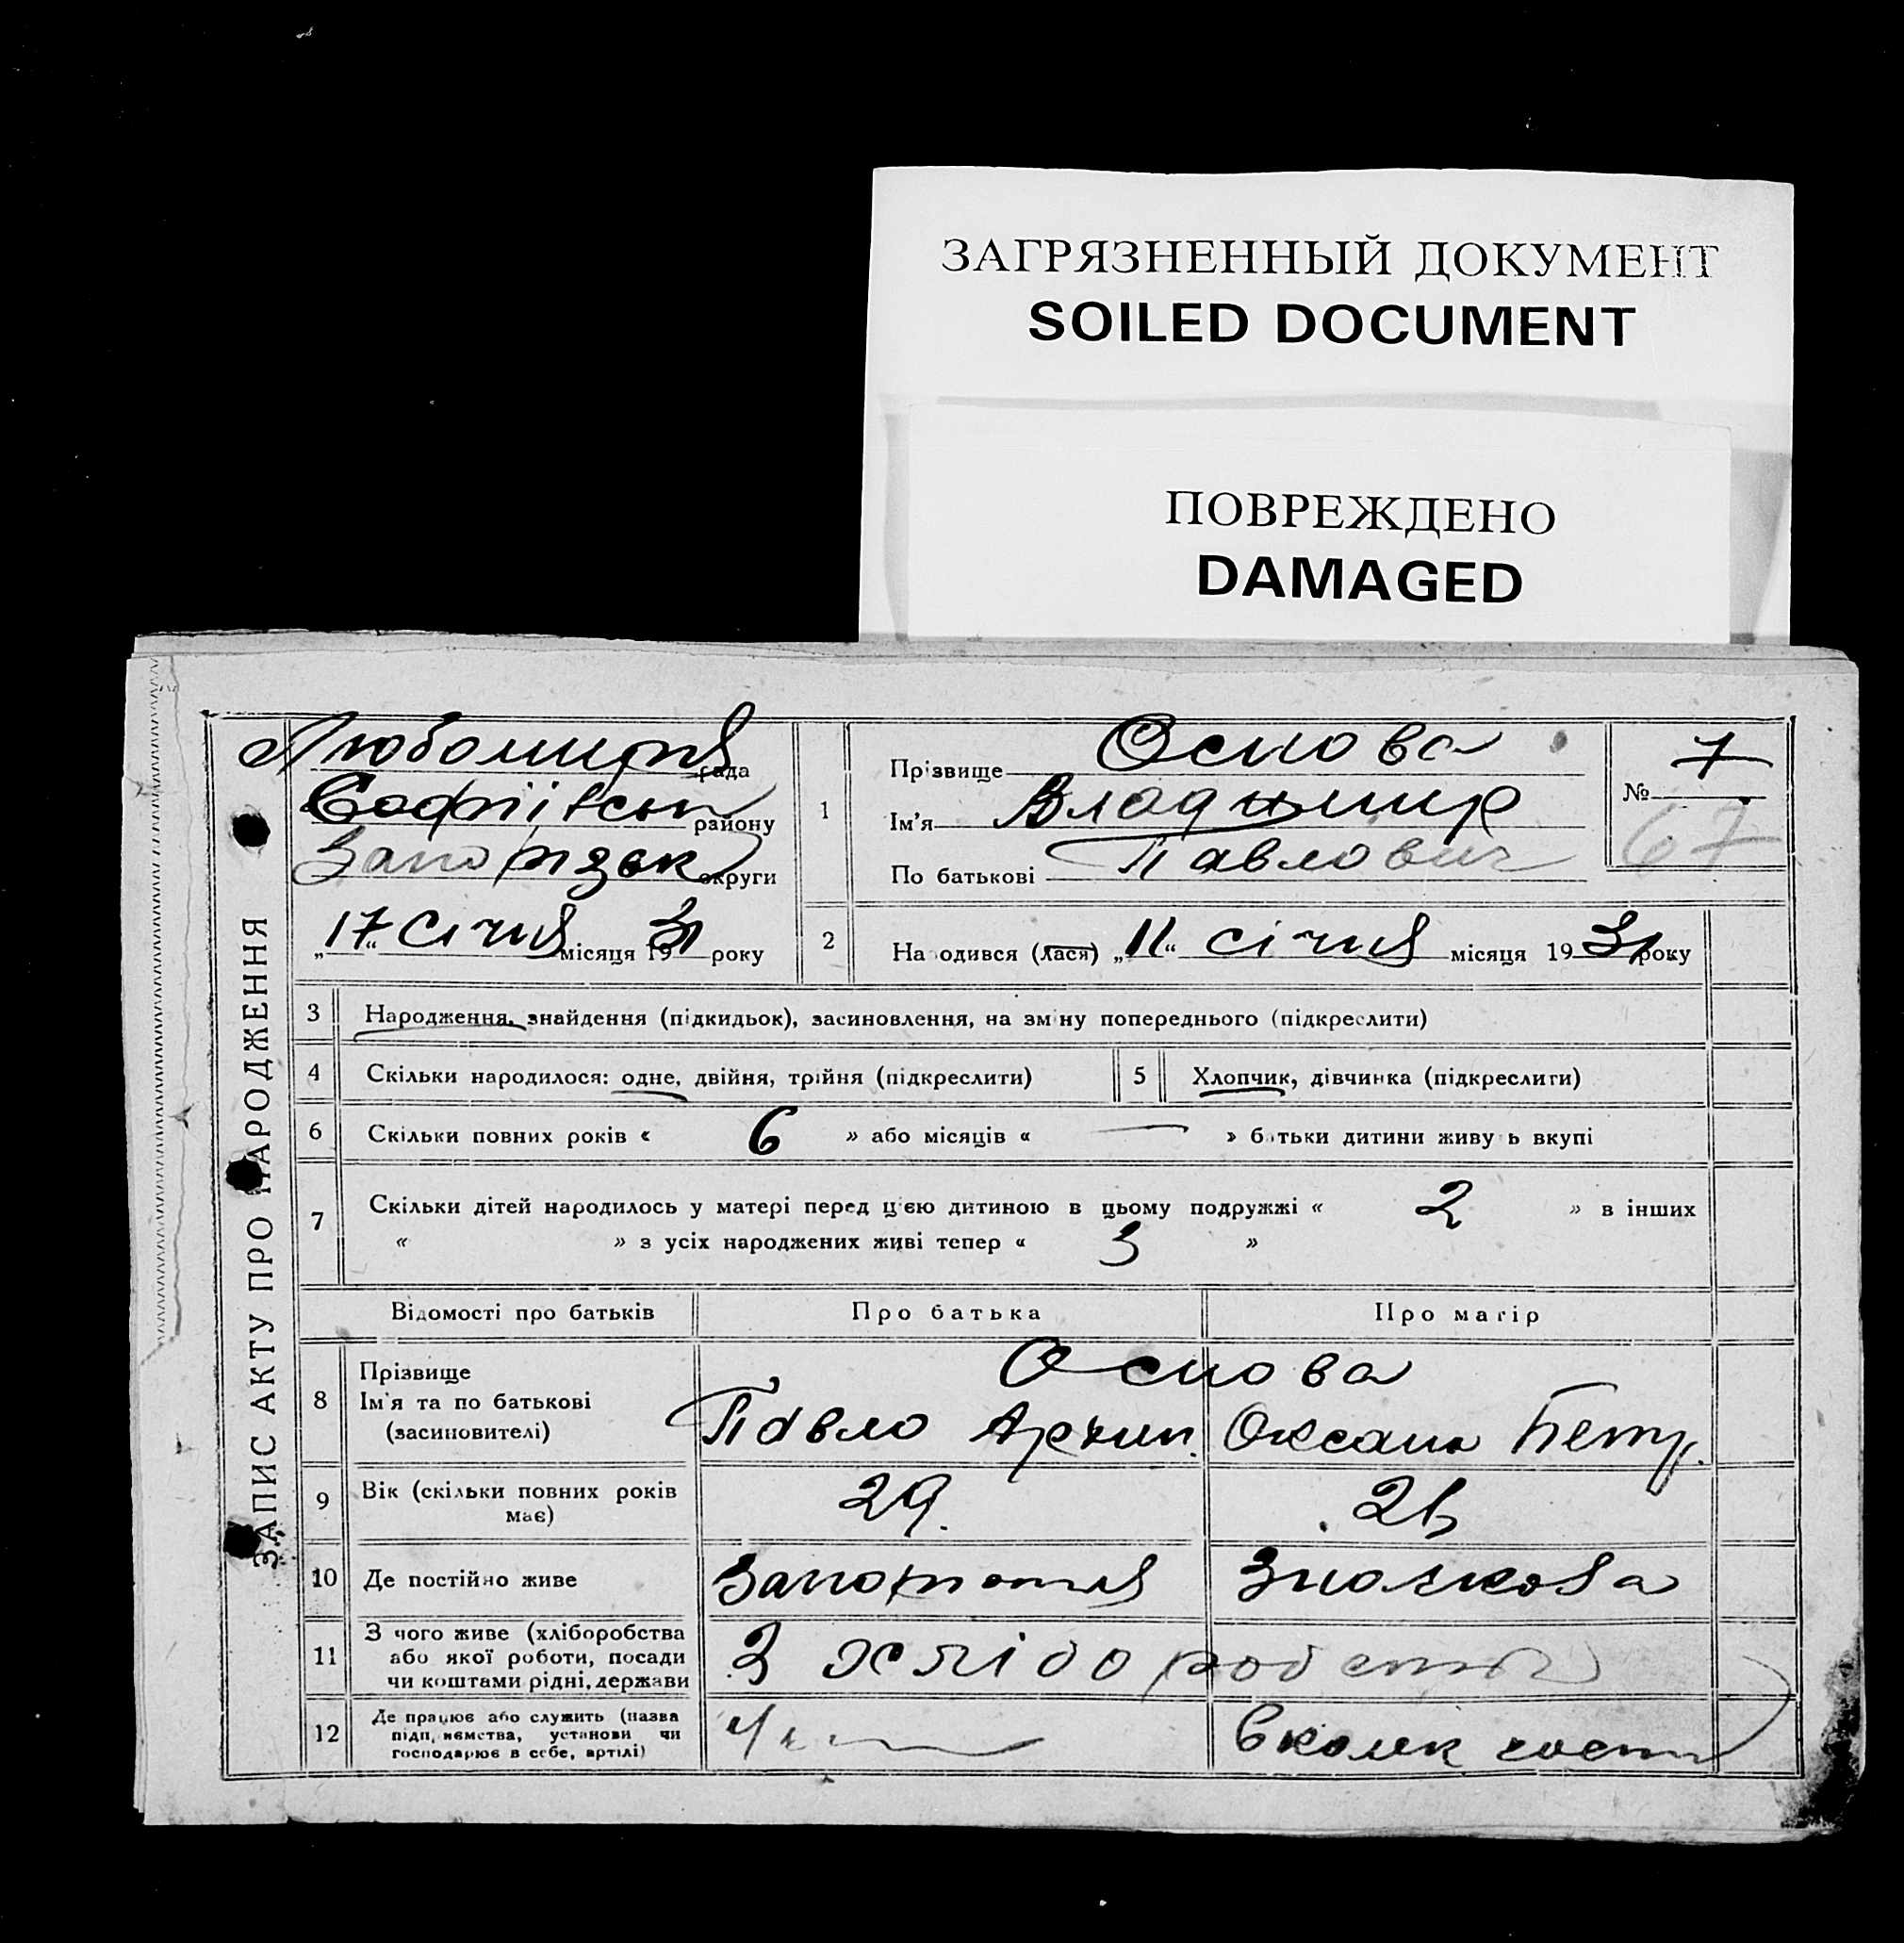 ЗАГРЯЗНЕННЫЙ ДОКУМЕНТ
SOILED DOCUMENT
ПОВРЕЖДЕНО
DAMAGED
ЗАПИС АКТУ ПРО НАРОДЖЕННЯ
рада
Софіївськ району
округи
„17“ Січня місяця 1931 року
1
Прізвище Основа
Ім'я Владимир
По батькові Павлович
№ 7
67
2 Народився (лася) „11“ січня місяця 1931 року
3 Народження, знайдення (підкидьок), засиновлення, на зміну попереднього (підкреслити)
4 Скільки народилося: одне, двійня, трійня (підкреслити)
5 Хлопчик, дівчинка (підкреслити)
6 Скільки повних років « 6 » або місяців « — » батьки дитини живуть вкупі
7 Скільки дітей народилось у матері перед цією дитиною в цьому подружжі « 2 » в інших
« » з усіх народжених живі тепер « 3 »
Відомості про батьків Про батька Про матір
8 Прізвище Основа
Ім'я та по батькові Павло Архип. Оксана Петр.
(засиновителі)
9 Вік (скільки повних років має) 29. 26
10 Де постійно живе
11 З чого живе (хліборобства
або якої роботи, посади
чи коштами рідні, держави
З хліборобства
12 Де працює або служить (назва
підприємства, установи чи
господарює в себе, артілі)